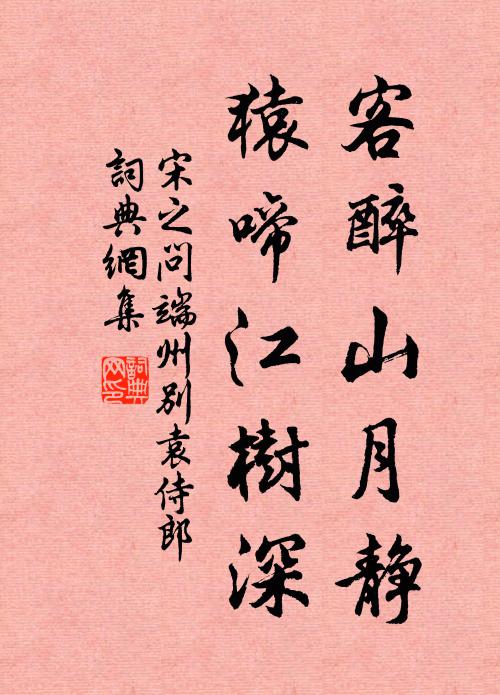 客醉山月静
猿啼江樹深
宋之问端州别袁侍郎
詞典網集
詞典网印